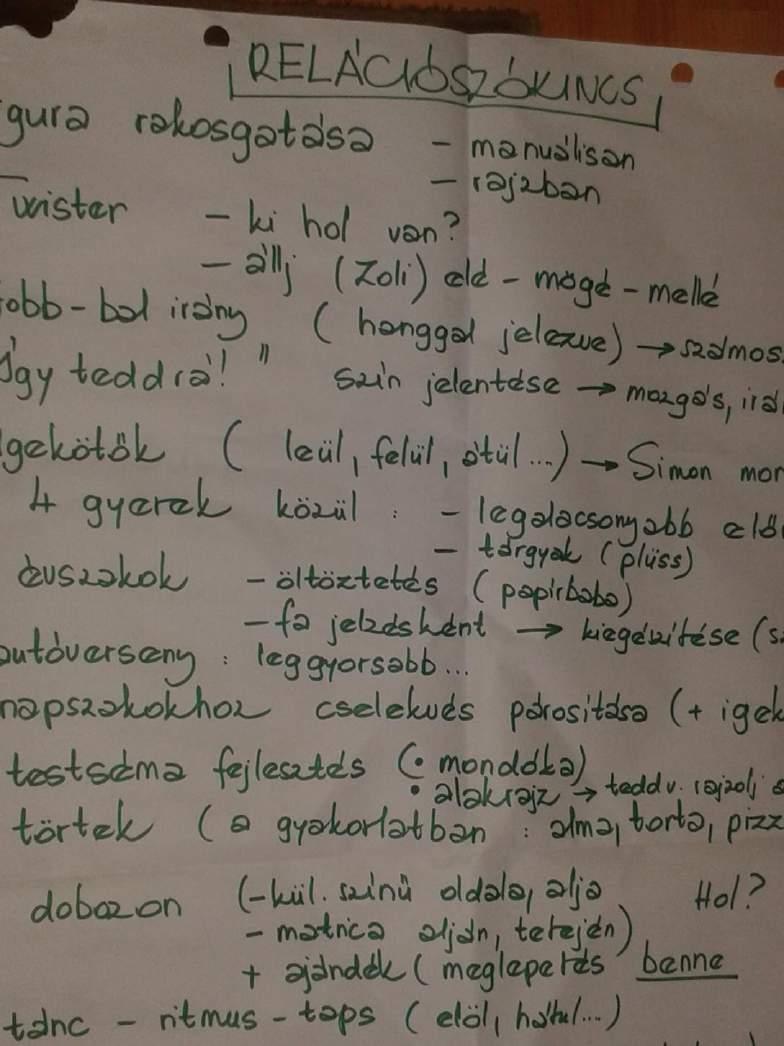 RELÁCIÓSZÓKINCS
gura rakosgatása - manuálisan
- rajzban
wister - ki hol van?
- állj (Zoli) elé - mögé - mellé
obb-bal irány (hanggal jelezve) → számos
Így tedd rá!" szín jelentése → mozgás, irá
gekötők (leül, felül, átül...) → Simon mon
4 gyerek közül : - legalacsonyabb elő
- tárgyak (plüss)
évszakok - öltöztetés (papírbaba)
- fa jelzésként → kiegészítése (s
autóverseny : leggyorsabb...
napszakokhoz cselekvés párosítása (+ igek
testséma fejlesztés (• mondóka)
• alakrajz → tedd v. rajzolj
törtek (a gyakorlatban : alma, torta, pizz
dobozon (-kül. színű oldala, alja Hol?
- matrica alján, tetején)
+ ajándék (meglepetés benne
tánc - ritmus - taps (elöl, hátul...)